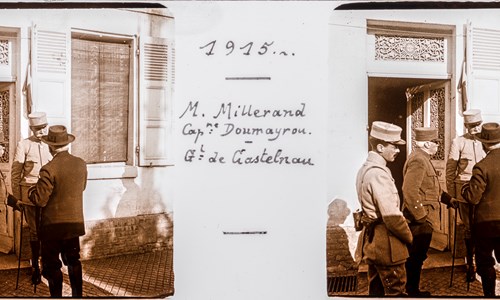 1915..
M. Millerand
Capne Doumayrou.
Gl de Castelnau